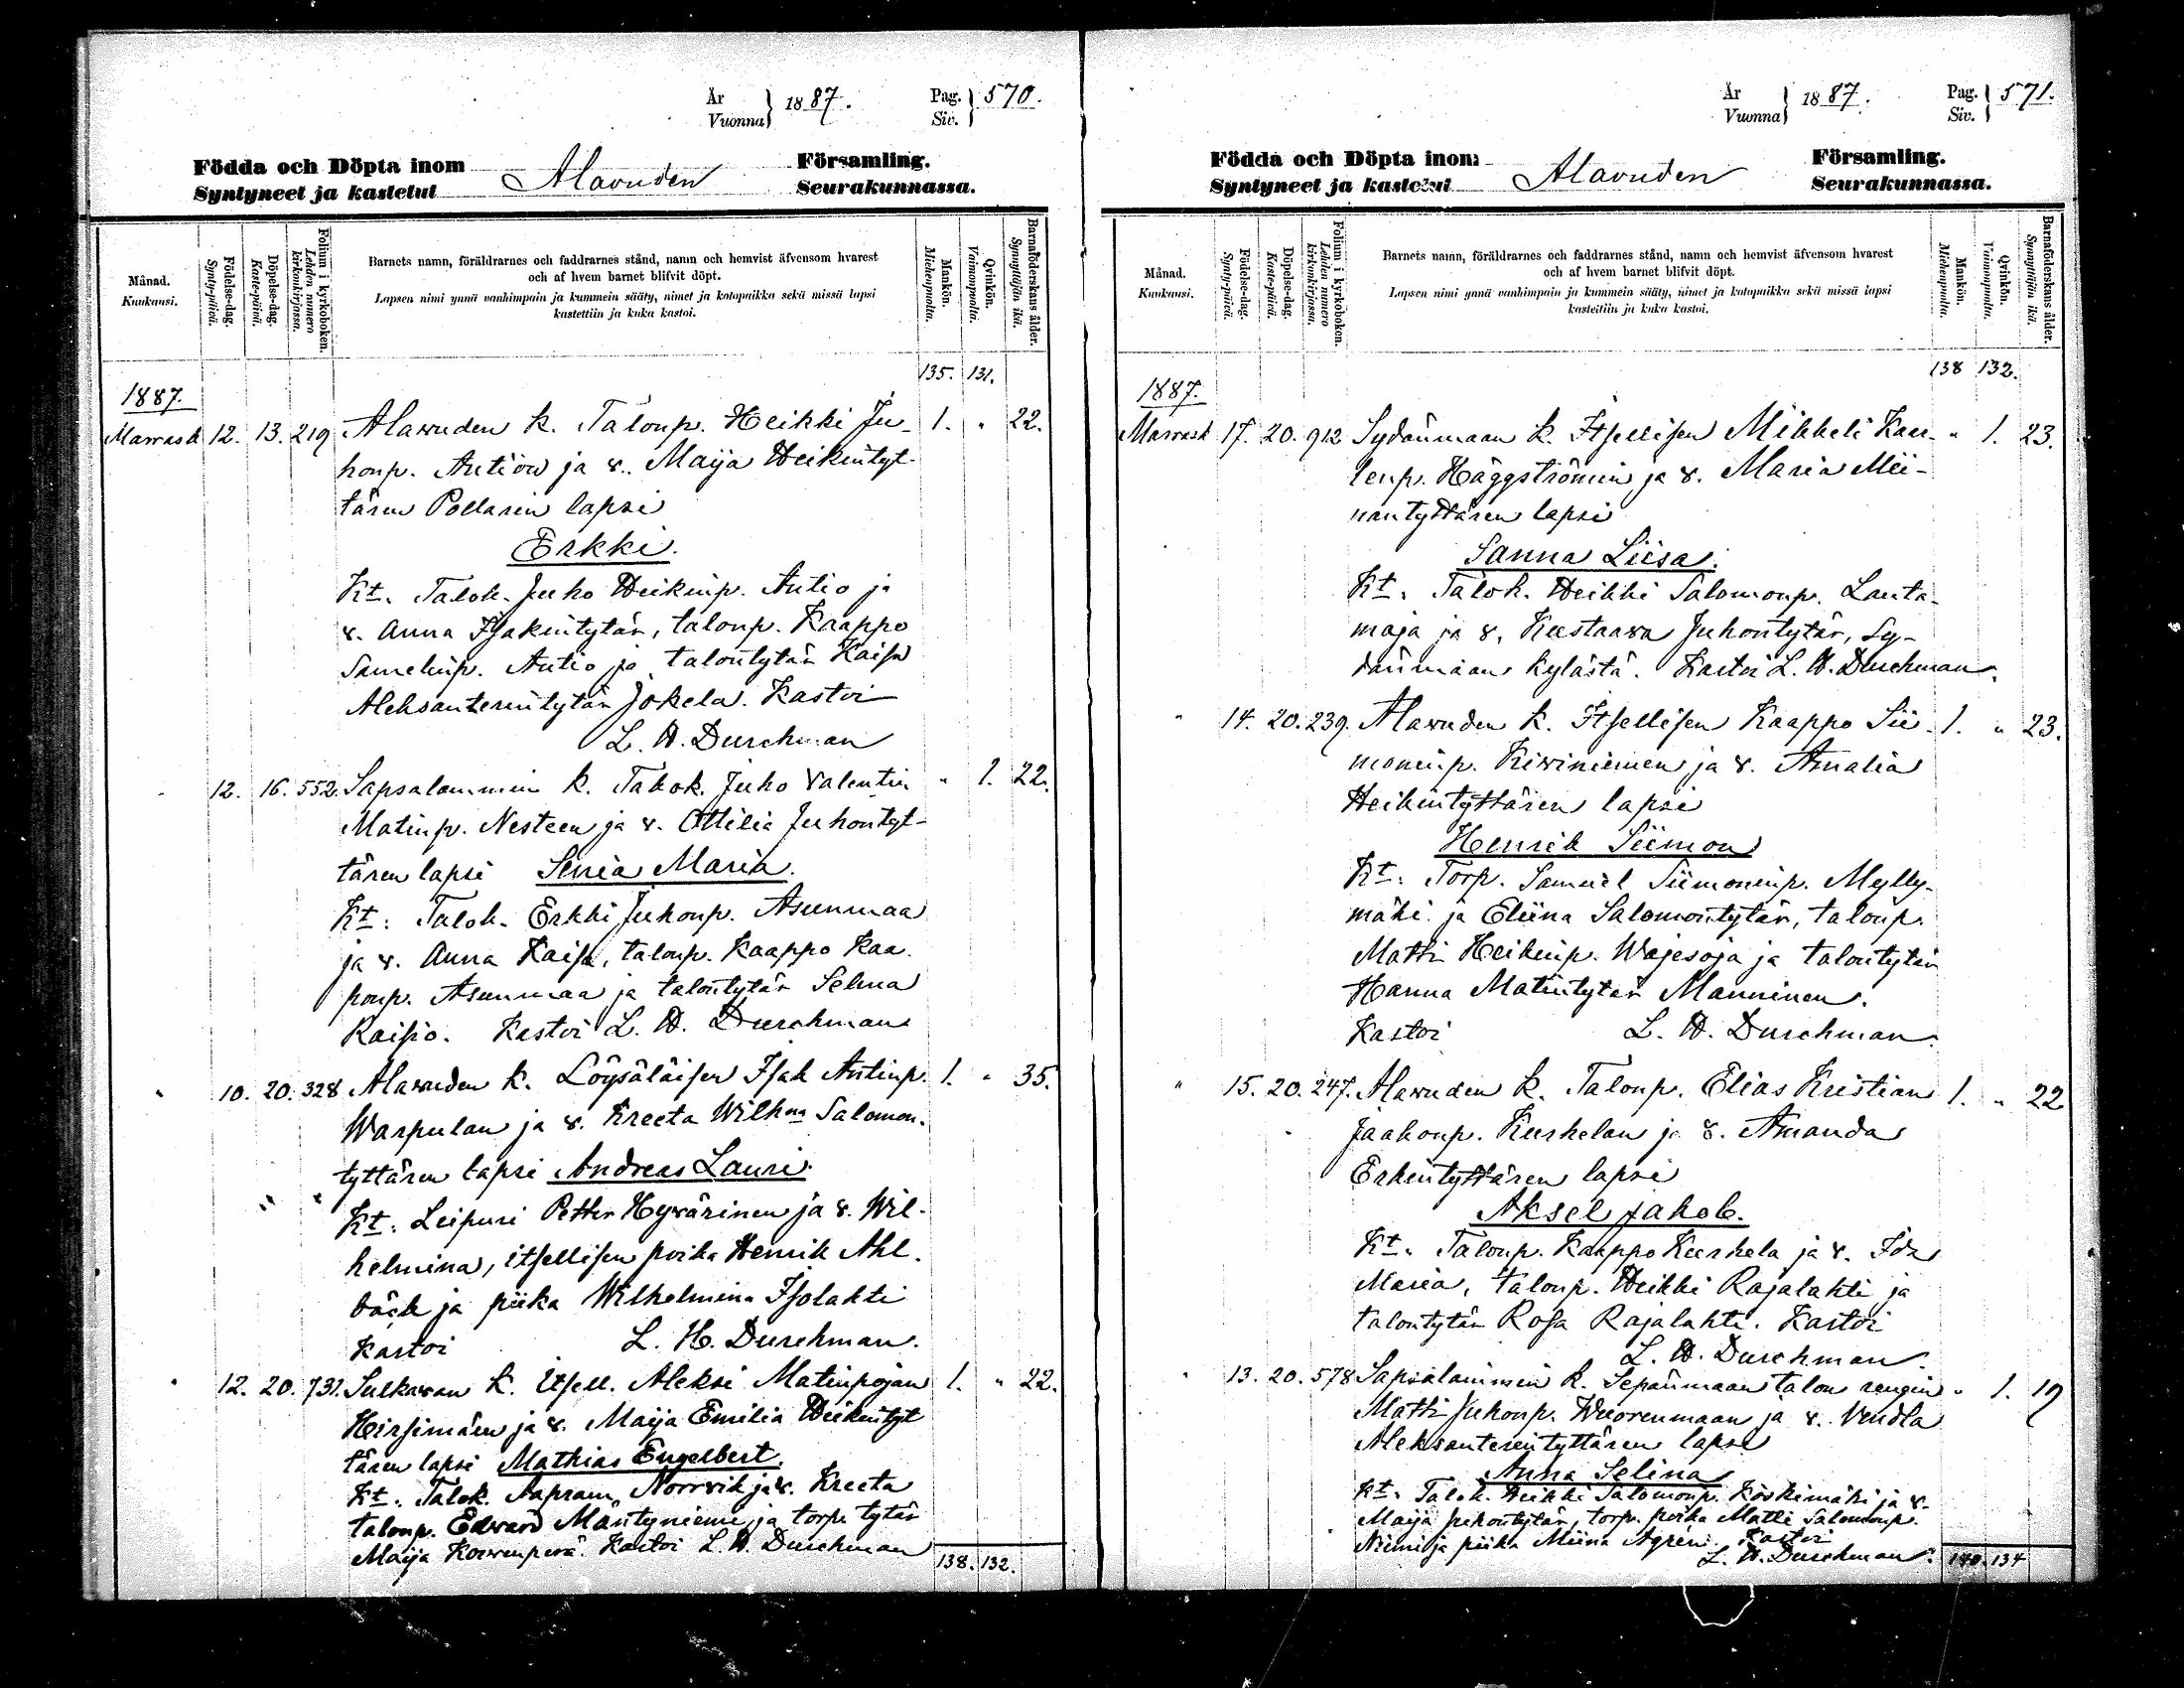 År
Vuonna } 1887.
Pag.
Siv. } 570.
Födda och Döpta inom Alavuden Församling.
Syntyneet ja kastetut Seurakunnassa.
Månad.
Kuukausi.
Födelse-dag.
Synty-päivä.
Döpelse-dag.
Kaste-päivä.
Folium i kyrkoboken.
Lehden numero
kirkonkirjassa.
Barnets namn, föräldrarnes och faddrarnes stånd, namn och hemvist äfvensom hvarest
och af hvem barnet blifvit döpt.
Lapsen nimi ynnä vanhimpain ja kummein sääty, nimet ja kotopaikka sekä missä lapsi
kastettiin ja kuka kastoi.
Mankön.
Miehenpuolta.
Qvinkön.
Vaimonpuolta.
Barnaföderskans ålder.
Synnyttäjän ikä.
135. 131.
1887.
Marrask 12. 13. 219 Alawuden k. Talonp. Heikki Ju- 1. " 22.
honp. Antion ja v. Maija Heikintyt-
tären Pollarin lapsi
Erkki.
Kt. Talok. Juho Heikinp. Antio ja
v. Anna Isakintytär, talonp. Kaappo
Samelinp. Antio ja talontytär Kaisa
Aleksanterintytär Jokela. Kastoi
L. H. Durchman
" 12. 16. 552. Sapsalammin k. Talok. Juho Valentin " 1. 22.
Matinp. Nesteen ja v. Ottilia Juhontyt-
tären lapsi Senia Maria.
Kt: Talok. Erkki Juhonp. Asunmaa
ja v. Anna Kaisa, talonp. Kaappo Kaa-
ponp. Asunmaa ja talontytär Selma
Raisio. Kastoi L. H. Durchman
" 10. 20. 328 Alawuden k. Löysäläisen Isak Antinp. 1. " 35.
Warpulan ja v. Kreeta Wilhna Salomon-
tyttären lapsi Andreas Lauri.
Kt: Leipuri Petter Hywärinen ja v. Wil-
helmina, itsellisen poika Henrik Ahl-
bäck ja piika Wilhelmina Isolahti
Kastoi L. H. Durchman.
" 12. 20. 731. Sulkawan k. Itsell. Aleksi Matinpojan 1. " 22.
Hirsimäen ja v. Maija Emilia Heikintyt
tären lapsi Mathias Engelbert.
Kt. Talok. Aapram Norrvik ja v. Kreeta
talonp. Edward Mäntyniemi ja torp. tytär
Maija Korvenperä. Kastoi L. H. Durchman
138. 132.
År
Vuonna } 1887.
Pag.
Siv. } 571.
Födda och Döpta inom Alavuden Församling.
Syntyneet ja kastetut Seurakunnassa.
Månad.
Kuukausi.
Födelse-dag.
Synty-päivä.
Döpelse-dag.
Kaste-päivä.
Folium i kyrkoboken.
Lehden numero
kirkonkirjassa.
Barnets namn, föräldrarnes och faddrarnes stånd, namn och hemvist äfvensom hvarest
och af hvem barnet blifvit döpt.
Lapsen nimi ynnä vanhimpain ja kummein sääty, nimet ja kotopaikka sekä missä lapsi
kastettiin ja kuka kastoi.
Mankön.
Miehenpuolta.
Qvinkön.
Vaimonpuolta.
Barnaföderskans ålder.
Synnyttäjän ikä.
138 132.
1887.
Marrask 17. 20. 912 Sydänmaan k. Itsellisen Mikkeli Kaa- " 1. 23.
lenp. Häggströmin ja v. Maria Mii-
nantyttären lapsi
Sanna Liisa.
Kt. Talok. Heikki Salomonp. Lauta-
maja ja v. Kustaava Juhontytär, Sy-
dänmaan kylästä. Kastoi L. H. Durchman.
" 14. 20. 239. Alawuden k. Itsellisen Kaappo Sii- 1. " 23.
moninp. Kiwiniemen ja v. Amalia
Heikintyttären lapsi
Henrik Siimon
Kt: Torp. Samuel Siimoninp. Mylly-
mäki ja Eliina Salomontytär, talonp.
Matti Heikinp. Wajesoja ja talontytär
Hanna Matintytär Manninen.
Kastoi L. H. Durchman.
" 15. 20. 247. Alawuden k. Talonp. Elias Kristian 1. " 22
Jaakonp. Kushelan ja v. Amanda
Erkintyttären lapsi
Aksel Jakob.
Kt. Talonp. Kaappo Kushela ja v. Ida
Maria, talonp. Heikki Rajalahti ja
talontytär Rosa Rajalahti. Kastoi
L. H. Durchman.
" 13. 20. 578 Sapsalammin k. Sepänmaan talon rengin " 1. 19
Matti Juhonp. Wuorenmaan ja v. Vendla
Aleksanterintyttären lapsi
Anna Selina
Kt. Talok. Heikki Salomonp. Koskimäki ja v.
Maija Juhontytär, torp. poika Matti Salomonp.
Niemi ja piika Miina Agrén. Kastoi
L. H. Durchman.
140. 134